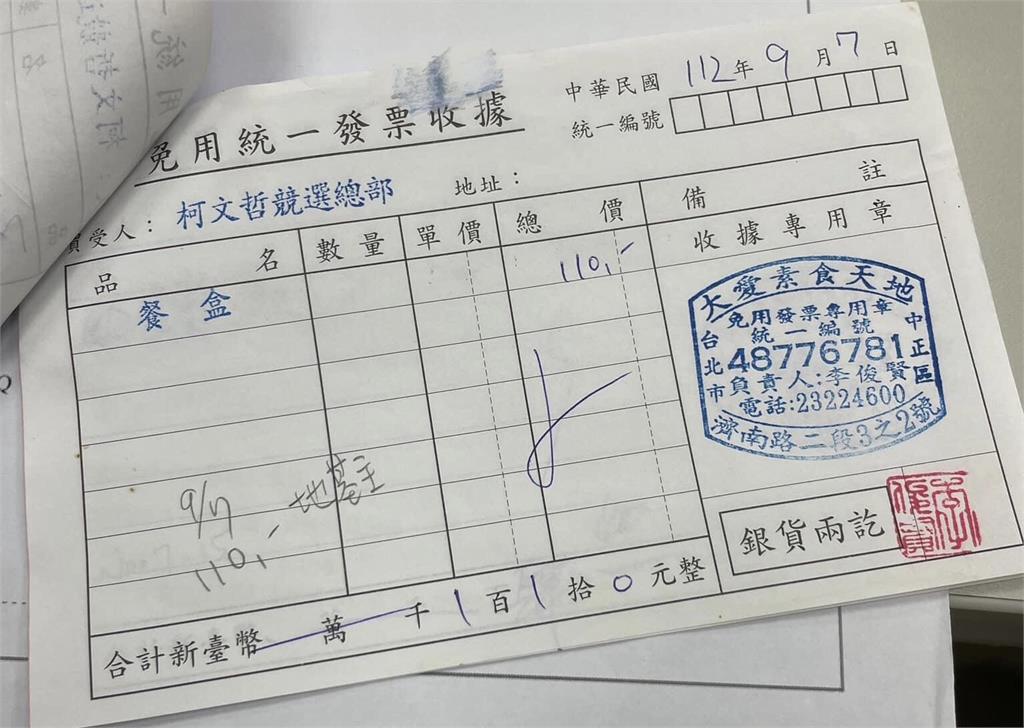 中華民國 112年 9月 7日
統一編號
免用統一發票收據
買受人：柯文哲競選總部 地址：
品名 數量 單價 總價 備註
餐盒 110,-
收據專用章
大愛素食天地
免用發票專用章
統一編號
48776781
負責人:李俊賢
電話:23224600
台北市
中正區
濟南路二段3之2號
9/7
110,-
銀貨兩訖
合計新臺幣 萬 千 1 百 1 拾 0 元整